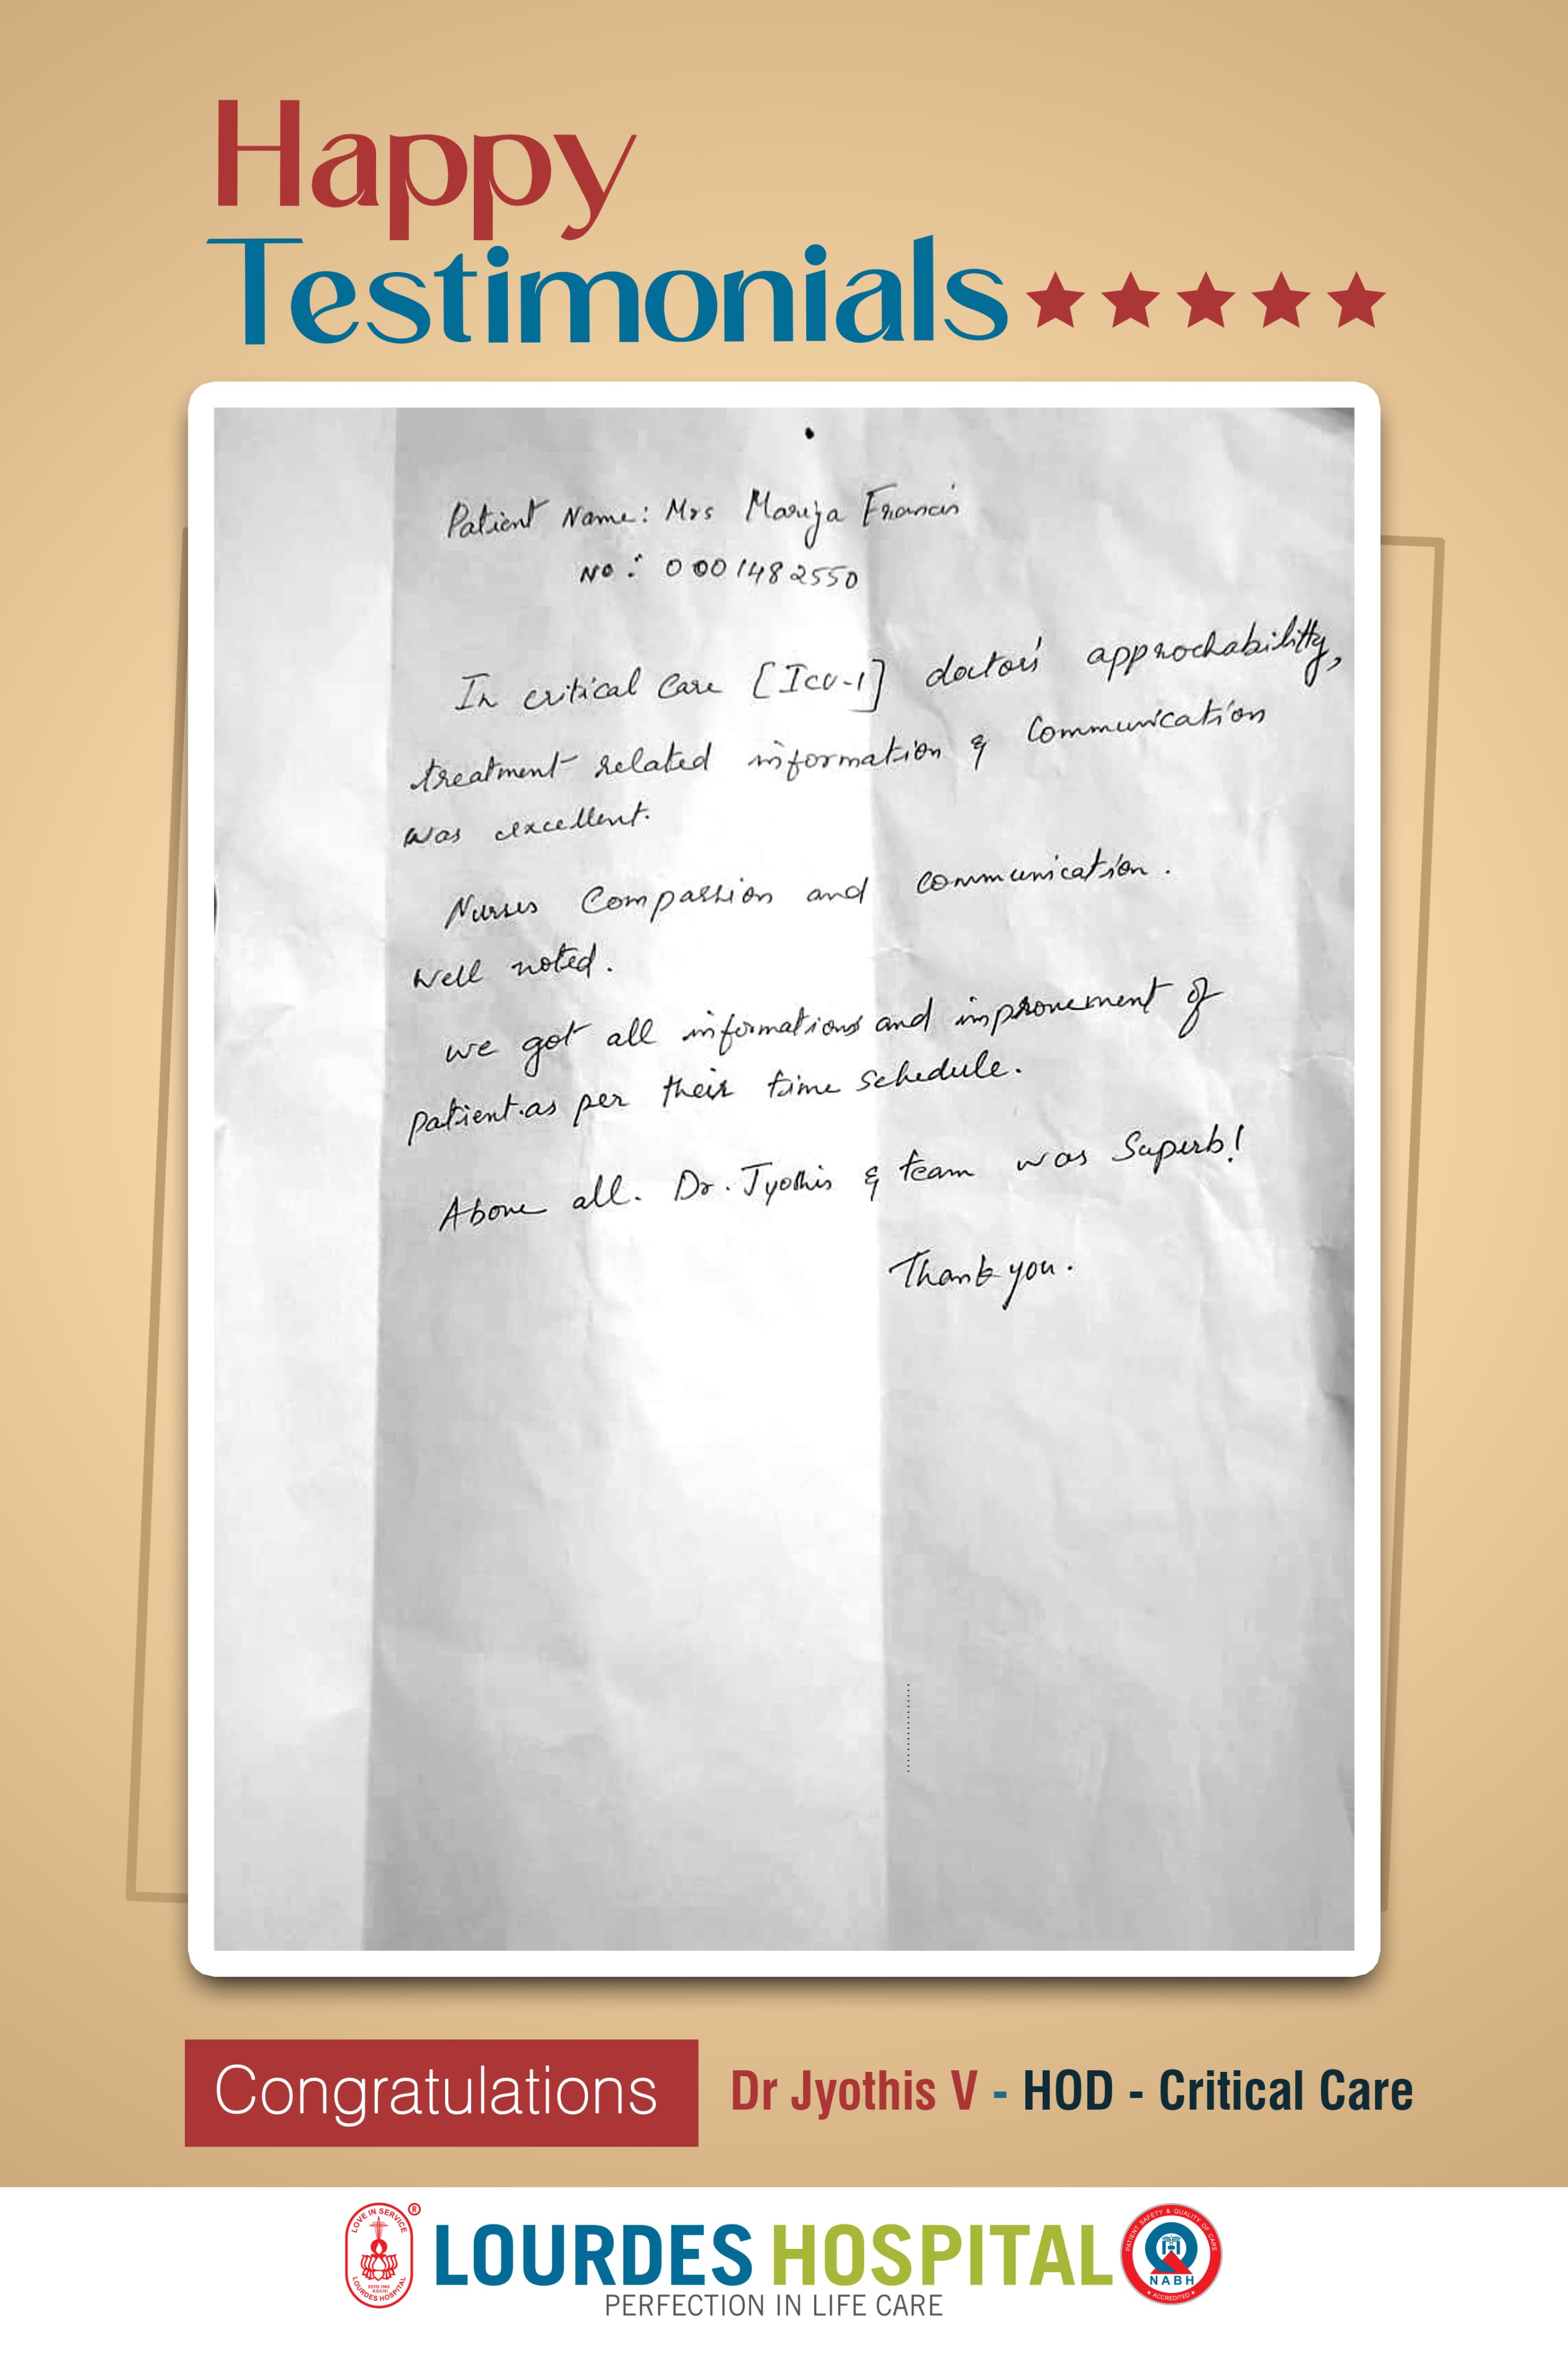 Happy
Testimonials
Patient Name: Mrs Mariya Francis
No: 0001482550
In critical Care [Icu-1] doctors approchability,
treatment related information & Communication
was excellent.
Nurses Compassion and communication.
Well noted.
we got all informations and improvement of
patient as per their time schedule.
Above all. Dr. Jyothis & team was Superb!
Thank you.
Congratulations
Dr Jyothis V - HOD - Critical Care
LOVE IN SERVICE
ESTD 1965
KOCHI
LOURDES HOSPITAL
®
LOURDES HOSPITAL
PERFECTION IN LIFE CARE
PATIENT SAFETY & QUALITY OF CARE
NABH
ACCREDITED